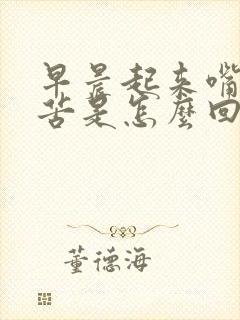 早晨起来嘴
苦是怎麼回
董德海